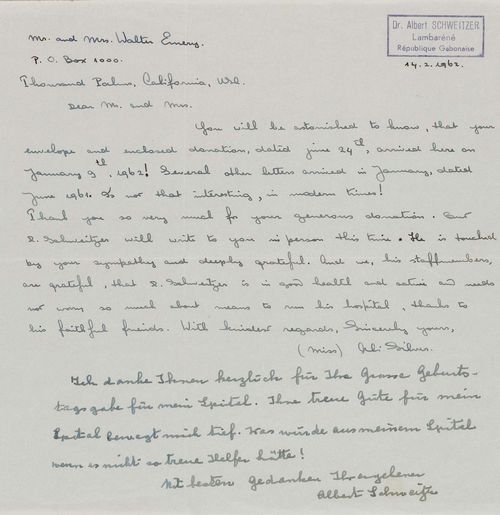 Mr. and Mrs. Walter Emery.
Dr. Albert SCHWEITZER
Lambaréné
République Gabonaise
P. O. Box 1000.
14.2.1962.
Thousand Palms, California, USA.
Dear Mr. and Mrs.
You will be astonished to know, that your
envelope and enclosed donation, dated june 24th, arrived here on
January 9th, 1962! Several other letters arrived in January, dated
June 1961. Is not that interesting, in modern times!
Thank you so very much for your generous donation. But
D. Schweitzer will write to you in person this time. He is touched
by your sympathy and deeply grateful. And we, his staffmembers,
are grateful, that D. Schweitzer is in good health and active and needs
not worry so much about means to run his hospital, thanks to
his faithful friends. With kindest regards, Sincerely yours,
(Miss) Ali Silver.
Ich danke Ihnen herzlich für Ihre Grosse Geburts-
tagsgabe für mein Spital. Ihre treue Güte für mein
Spital bewegt mich tief. Was würde aus meinem Spital
wenn es nicht so treue Helfer hätte!
Mit besten Gedanken Ihr ergebener
Albert Schweitzer